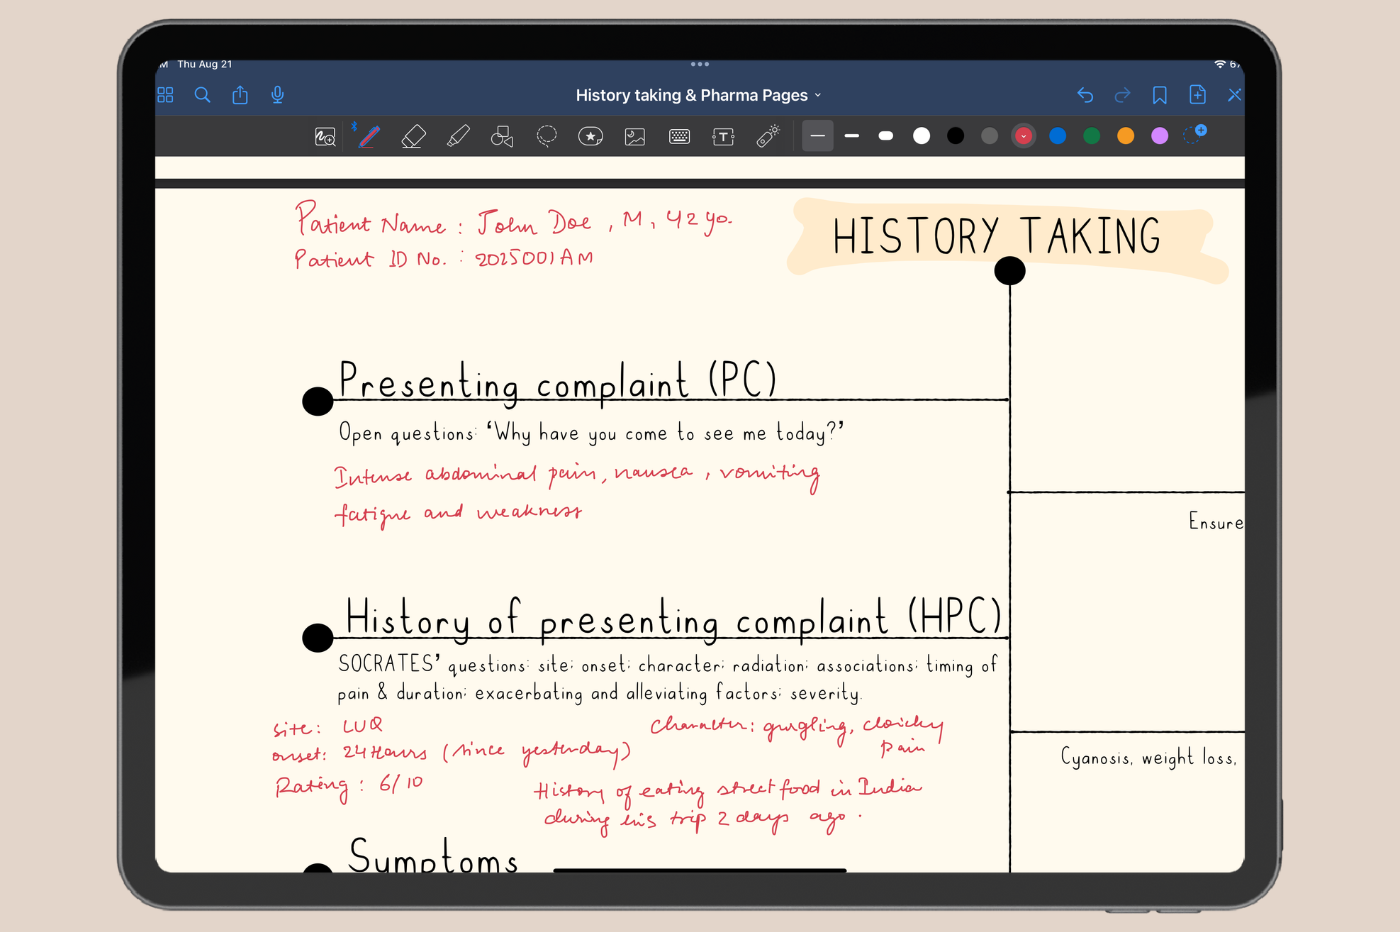 Thu Aug 21
History taking & Pharma Pages
Patient Name : John Doe , M, 42 yo.
Patient ID No. : 2025001AM
HISTORY TAKING
Presenting complaint (PC)
Open questions: ‘Why have you come to see me today?’
Intense abdominal pain, nausea , vomiting
fatigue and weakness
Ensure
History of presenting complaint (HPC)
SOCRATES’ questions: site; onset; character; radiation; associations; timing of
pain & duration; exacerbating and alleviating factors; severity.
site: LUQ
onset: 24 Hours (since yesterday)
Rating : 6/10
Character: gurgling,
pain
History of eating street food in India
during his trip 2 days ago .
Cyanosis, weight loss,
Symptoms